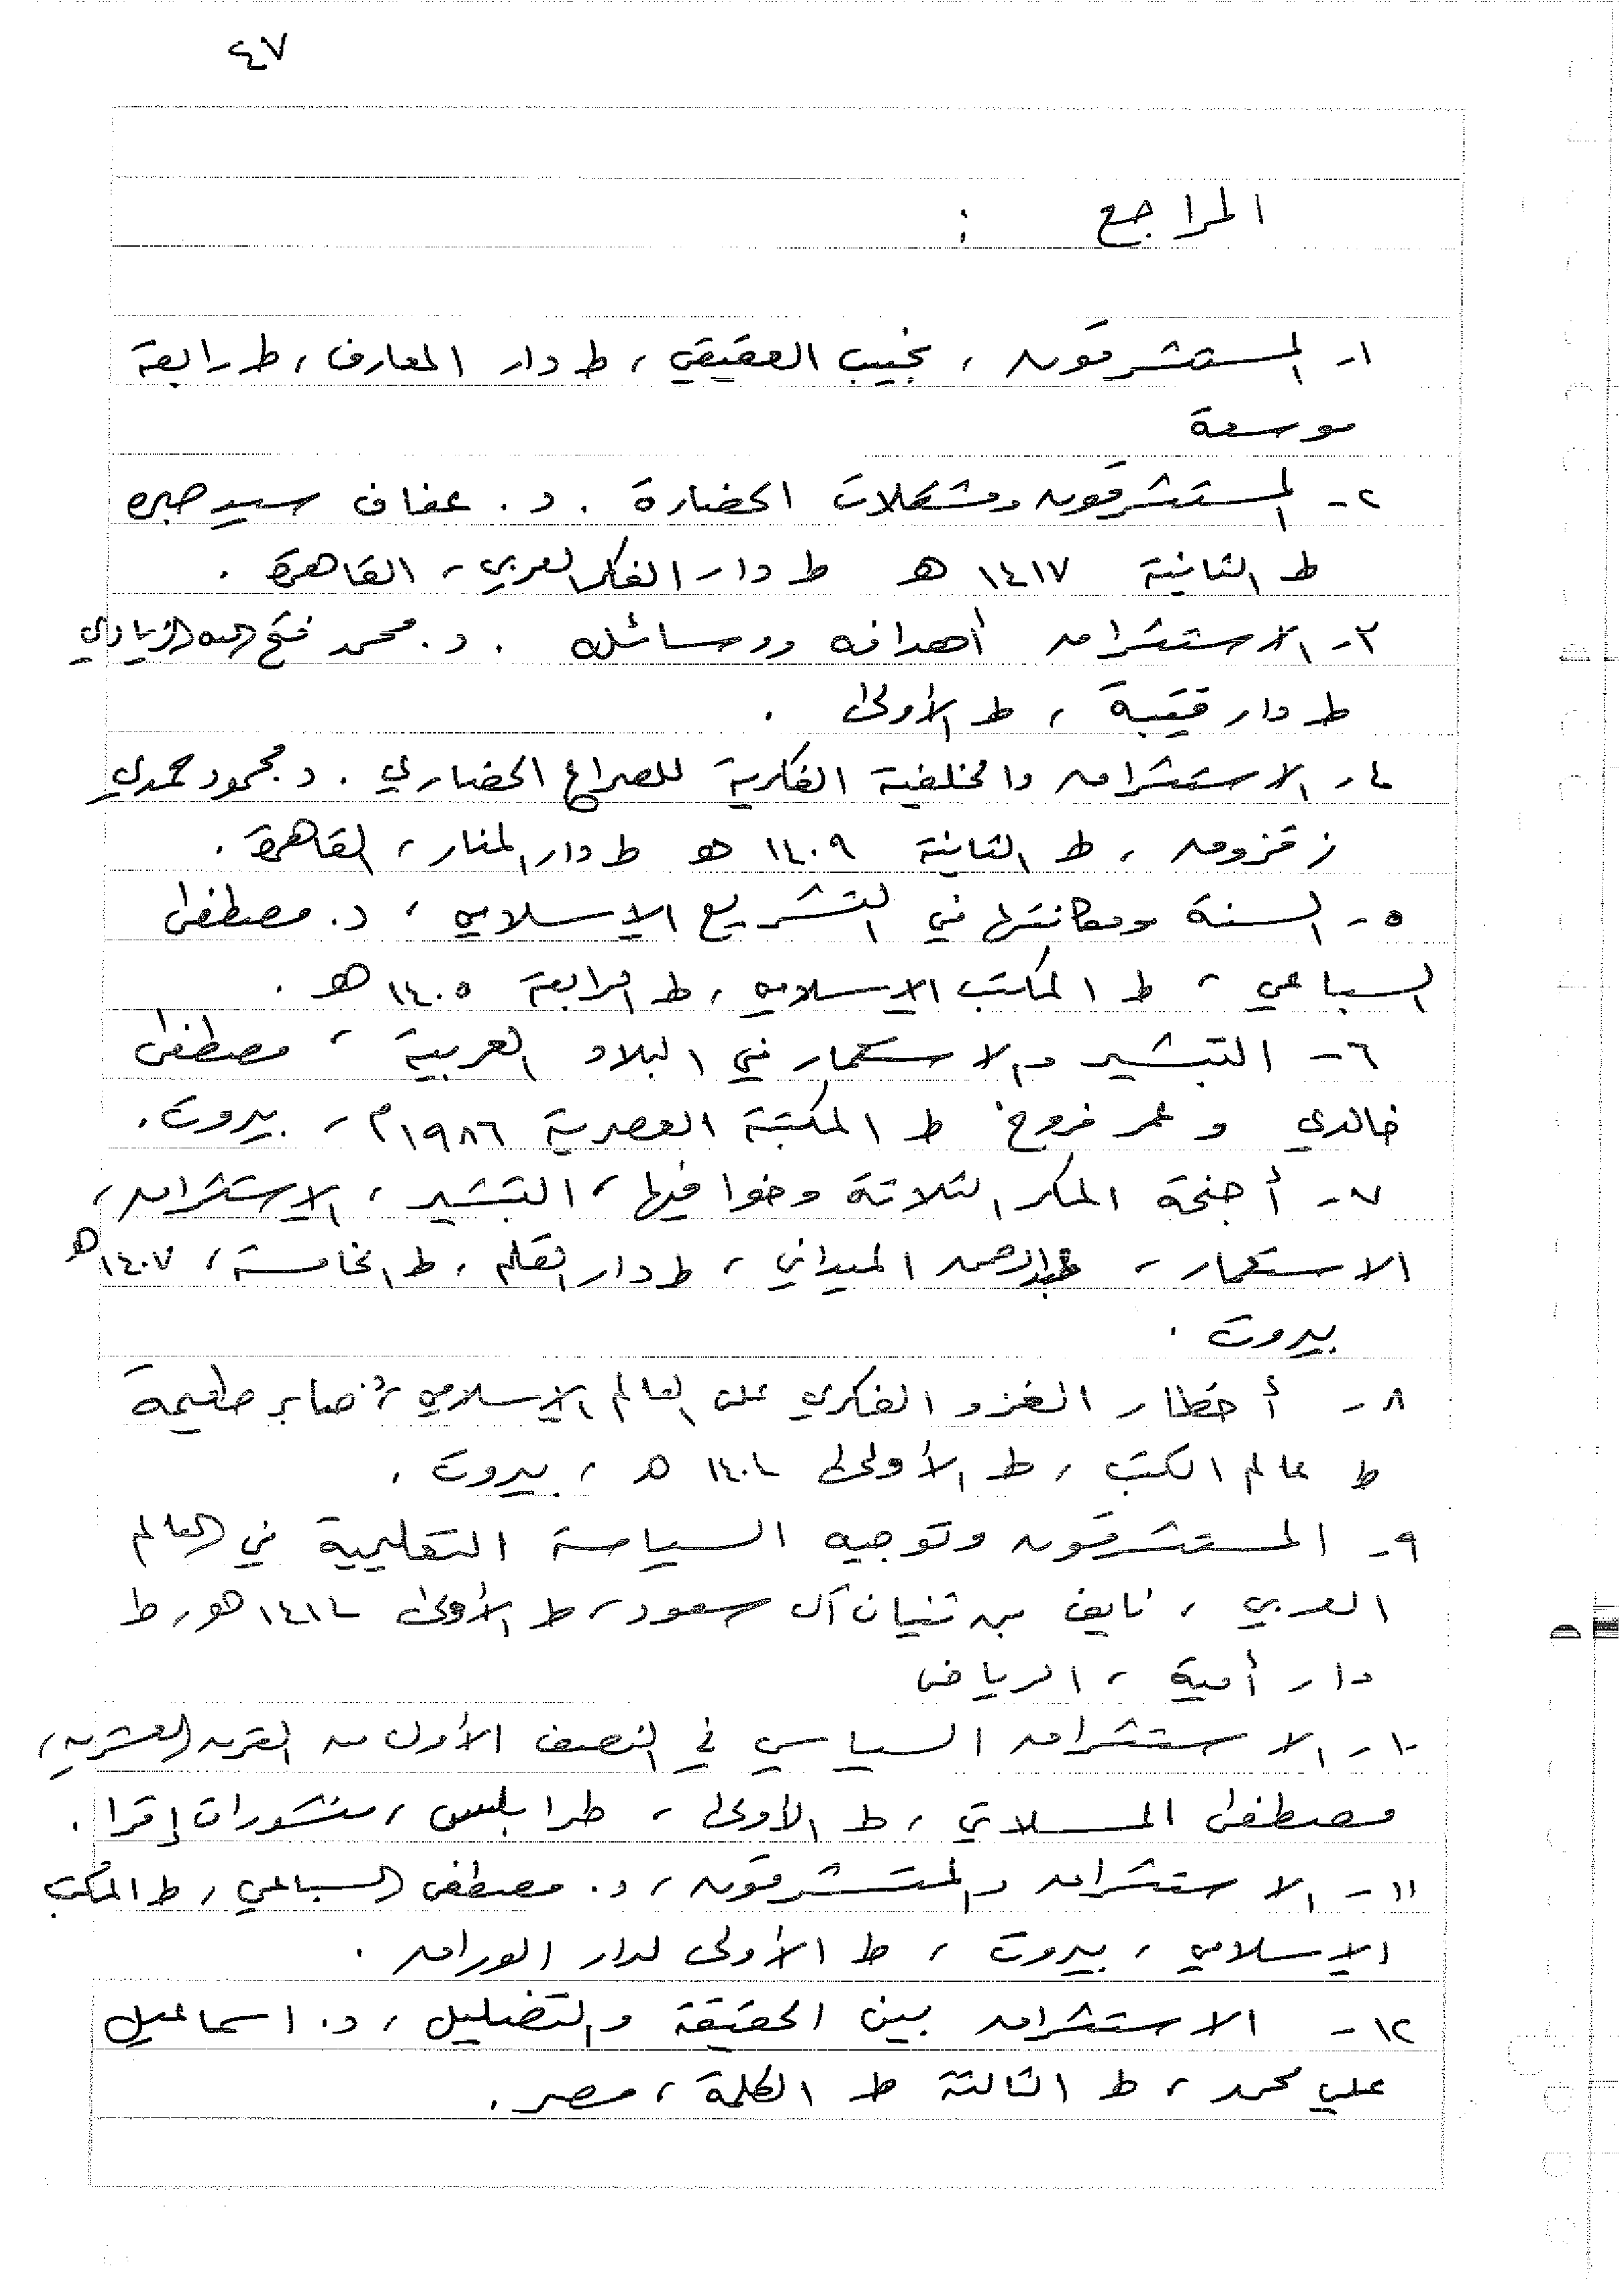 ٤٧
المراجع :
١- المستشرقون ، نجيب العقيقي ، ط دار المعارف ، ط رابعة
موسعة
٢- المستشرقون ومشكلات الحضارة . د. عفاف سيد صبره
ط الثانية ١٤١٧ هـ ط دار الفكر العربي ، القاهرة .
٣- الاستشراق أهدافه ووسائله . د. محمد فتح الله الزيادي
ط دار قتيبة ، ط الأولى .
٤- الاستشراق والخلفية الفكرية للصراع الحضاري . د محمود حمدي
زقزوق ، ط الثانية ١٤٠٩ هـ ط دار المنار ، القاهرة .
٥- السنة ومكانتها في التشريع الإسلامي ، د. مصطفى
السباعي ، ط المكتب الإسلامي ، ط الرابعة ١٤٠٥ هـ .
٦- التبشير والاستعمار في البلاد العربية ، مصطفى
خالدي وعمر فروخ ط المكتبة العصرية ١٩٨٦م ، بيروت .
٧- أجنحة المكر الثلاثة وخوافيها ، التبشير ، الاستشراق ،
الاستعمار ، عبدالرحمن الميداني ، ط دار القلم ، ط الخامسة ، ١٤٠٧هـ
بيروت .
٨- أخطار الغزو الفكري على العالم الإسلامي ، صابر طعيمة
ط عالم الكتب ، ط الأولى ١٤٠٤ هـ ، بيروت .
٩- المستشرقون وتوجيه السياسة التعليمية في العالم
العربي ، نايف بن ثنيان آل سعود ، ط الأولى ١٤١٤ هـ ، ط
دار أمية ، الرياض
١٠- الاستشراق السياسي في النصف الأول من القرن العشرين ،
مصطفى المسلاتي ، ط الأولى ، طرابلس ، منشورات إقرا .
١١- الاستشراق والمستشرقون ، د. مصطفى السباعي ، ط المكتب
الإسلامي ، بيروت ، ط الأولى لدار الوراق .
١٢- الاستشراق بين الحقيقة والتضليل ، د. اسماعيل
علي محمد ، ط الثالثة ط الكلمة ، مصر .